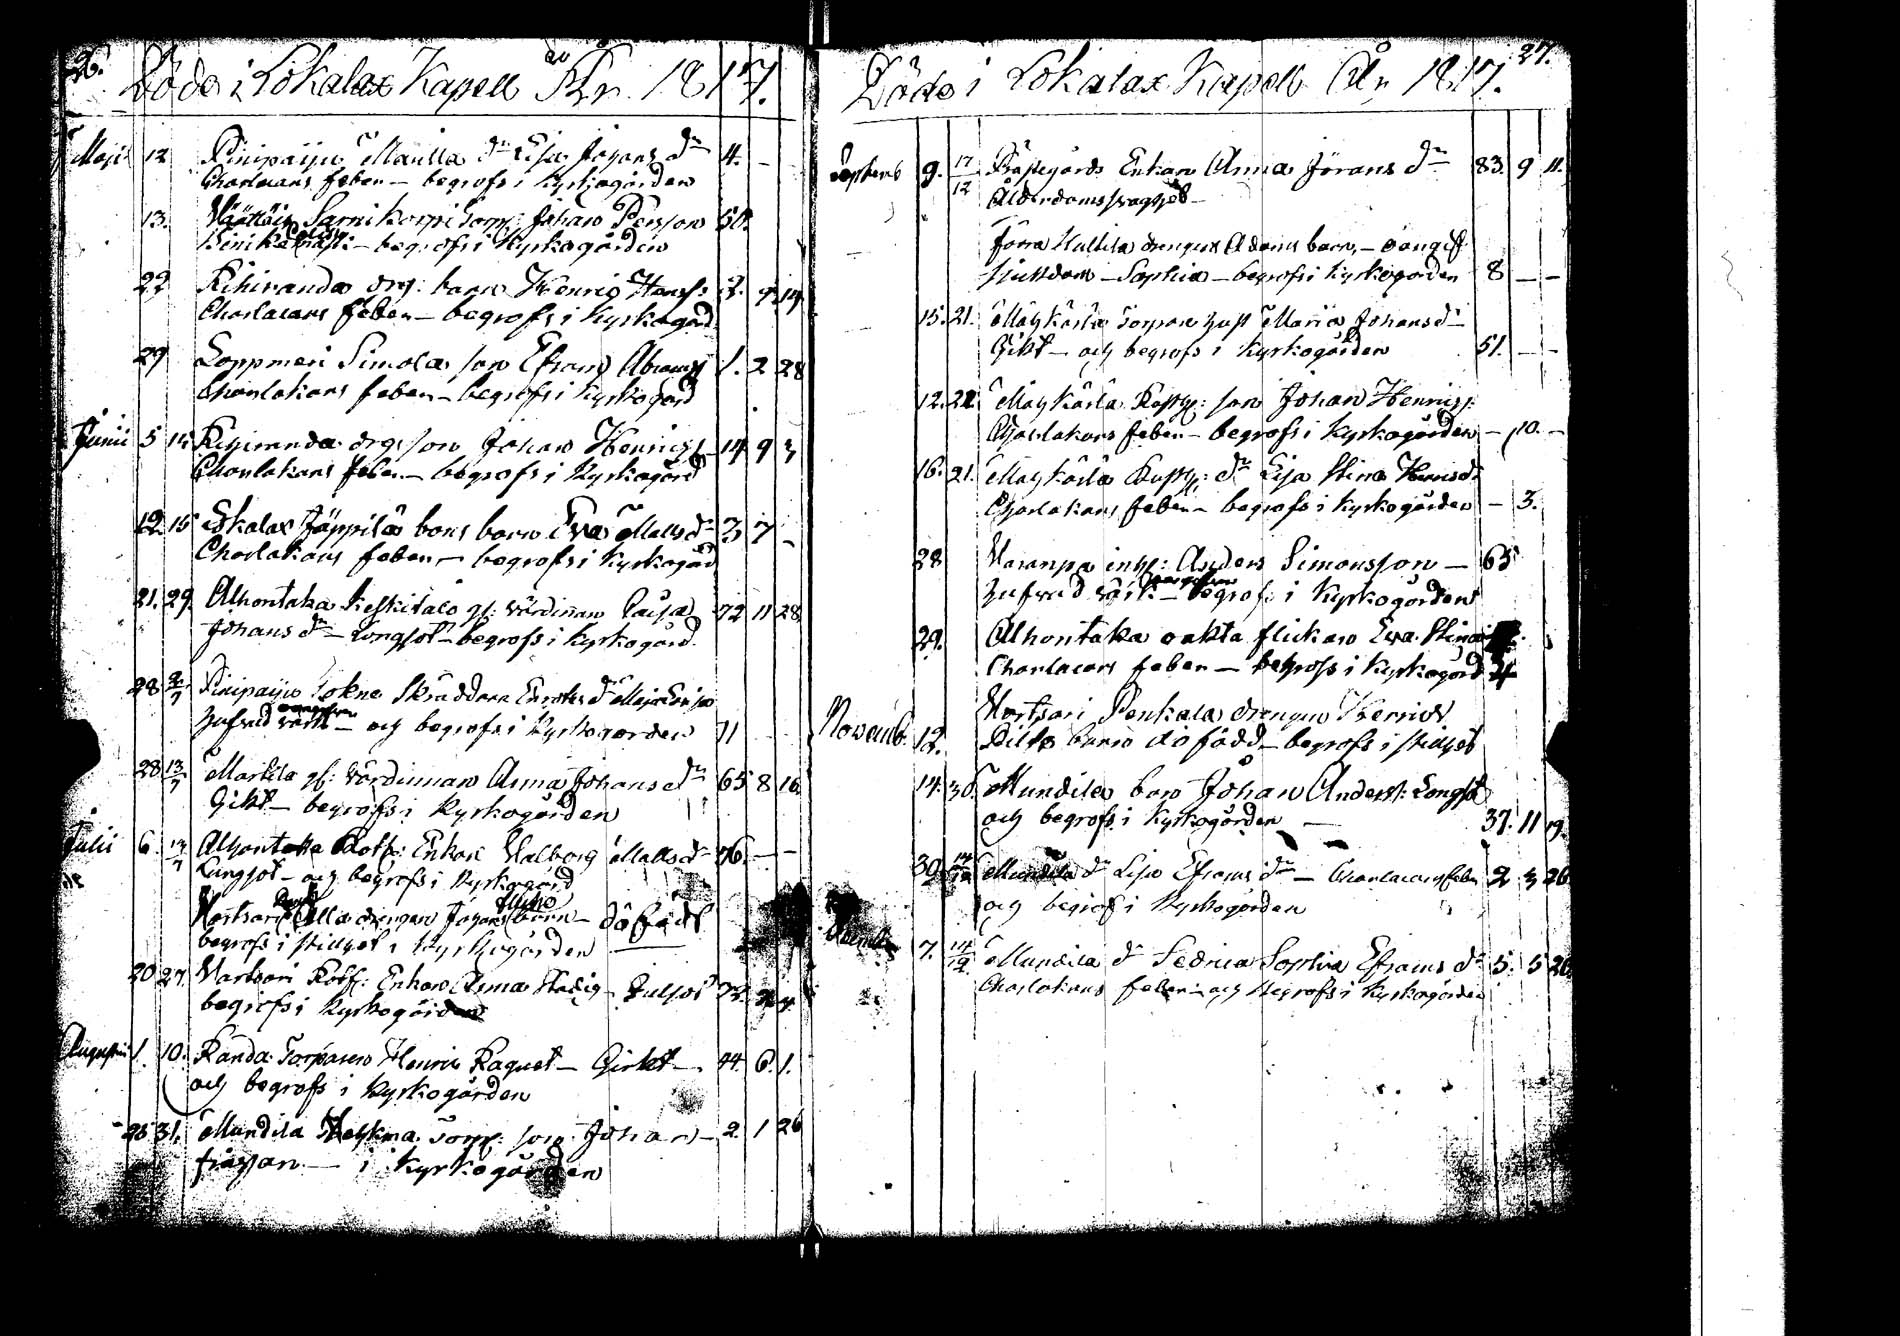 26.
Döde i Lokalax Kapell År 1817.
Maji 12 Pinipaiju Maulla dr Lisa Johans dr 4. -
Charlacans feber - begrofs i Kyrkogården
13. Sarnikorpi Torp: Johan Persson 50.
begrofs i Kyrkogården
22 Rihiranda drg: barn Henric Henrss: 3. 9. 14
Charlacans feber - begrofs i Kyrkogård
29 Loppmeri Simola son Efraim Abramss 1. 2 28
Charlakans feber - begrofs i Kyrkogård
Junii 5 15 Rihiranda drg: son Johan Henricss 14 9 3
Charlakans feber - begrofs i Kyrkogård
12 15 Lokalax Jäppilä bons barn Eva Matts dr 3 7 -
Charlakans feber - begrofs i Kyrkogård
21. 29. Alhontaka Keskitalo gl: värdinnan Caisa 72 11 28
Johans dr - Lungsot - begrofs i Kyrkogård.
28 2/7 Pinipaiju Skräddare dr Maja
hufvud värk - och begrofs i Kyrkogården 11
28 13/7 Markila gl: värdinnan Anna Johans dr 65 8 16
Gikt - begrofs i Kyrkogården
Julii 6. 13/7 Alhontaka Rotf: Enkan Walborg Matts dr 76. - -
Lungsot - och begrofs i Kyrkogård
Wartsari drengen Johans barn - dödfödt
begrofs i stillhet i Kyrkogården
20 27. Wartsari Rotf: Enkan Anna - Gulsot 72.
begrofs i Kyrkogården
Augusti 1. 10. Randa Torparen Henric Raquet - Gickt - 44 6. 1.
och begrofs i Kyrkogården
28 31. Mundila Torp: son Johan - 2. 1 26
- i Kyrkogården
27.
Döde i Lokalax Kapell År 1817.
Septemb 9. 17/12 Enkan Anna Jörans dr 83. 9 11.
Ålderdomssvaghet -
Förra Hullila drengens Adams barn, - oangif
sjukdom - Sophia - begrofs i Kyrkogården 8 - -
15. 21. Maykärlä Torpare hust Maria Johans dr
Gikt - och begrofs i Kyrkogården 51. - -
12. 21 Maykärlä Rustg: son Johan Henricss:
Charlakans feber - begrofs i Kyrkogården - 10. -
16. 21. Maykärlä Rustg: dr Lisa Stina Henricsdr
Charlakans feber - begrofs i Kyrkogården - 3.
28 Waranpä inhs: Anders Simonsson - 65
hufvud värk - begrof: i Kyrkogården
29. Alhontaka oäkta flickan Eva Stina
Charlacans feber - begrofs i Kyrkogård 4
Novemb. 12. Wartsari Penkala drengen Henric
barn dödfödd - begrofs i stillhet
14. 30. Mundila bon Johan Anderss: Lungsot
och begrofs i Kyrkogården - 37. 11 19.
30. 14/12 Mundila dr Lisa Efraims dr - Charlacans feber 2 3 26
och begrof i Kyrkogården
Decemb: 7. 14/12. Mundila dr Fedrica Sophia Efraims dr 5. 5 26
Charlakans feber - och begrofs i Kyrkogården